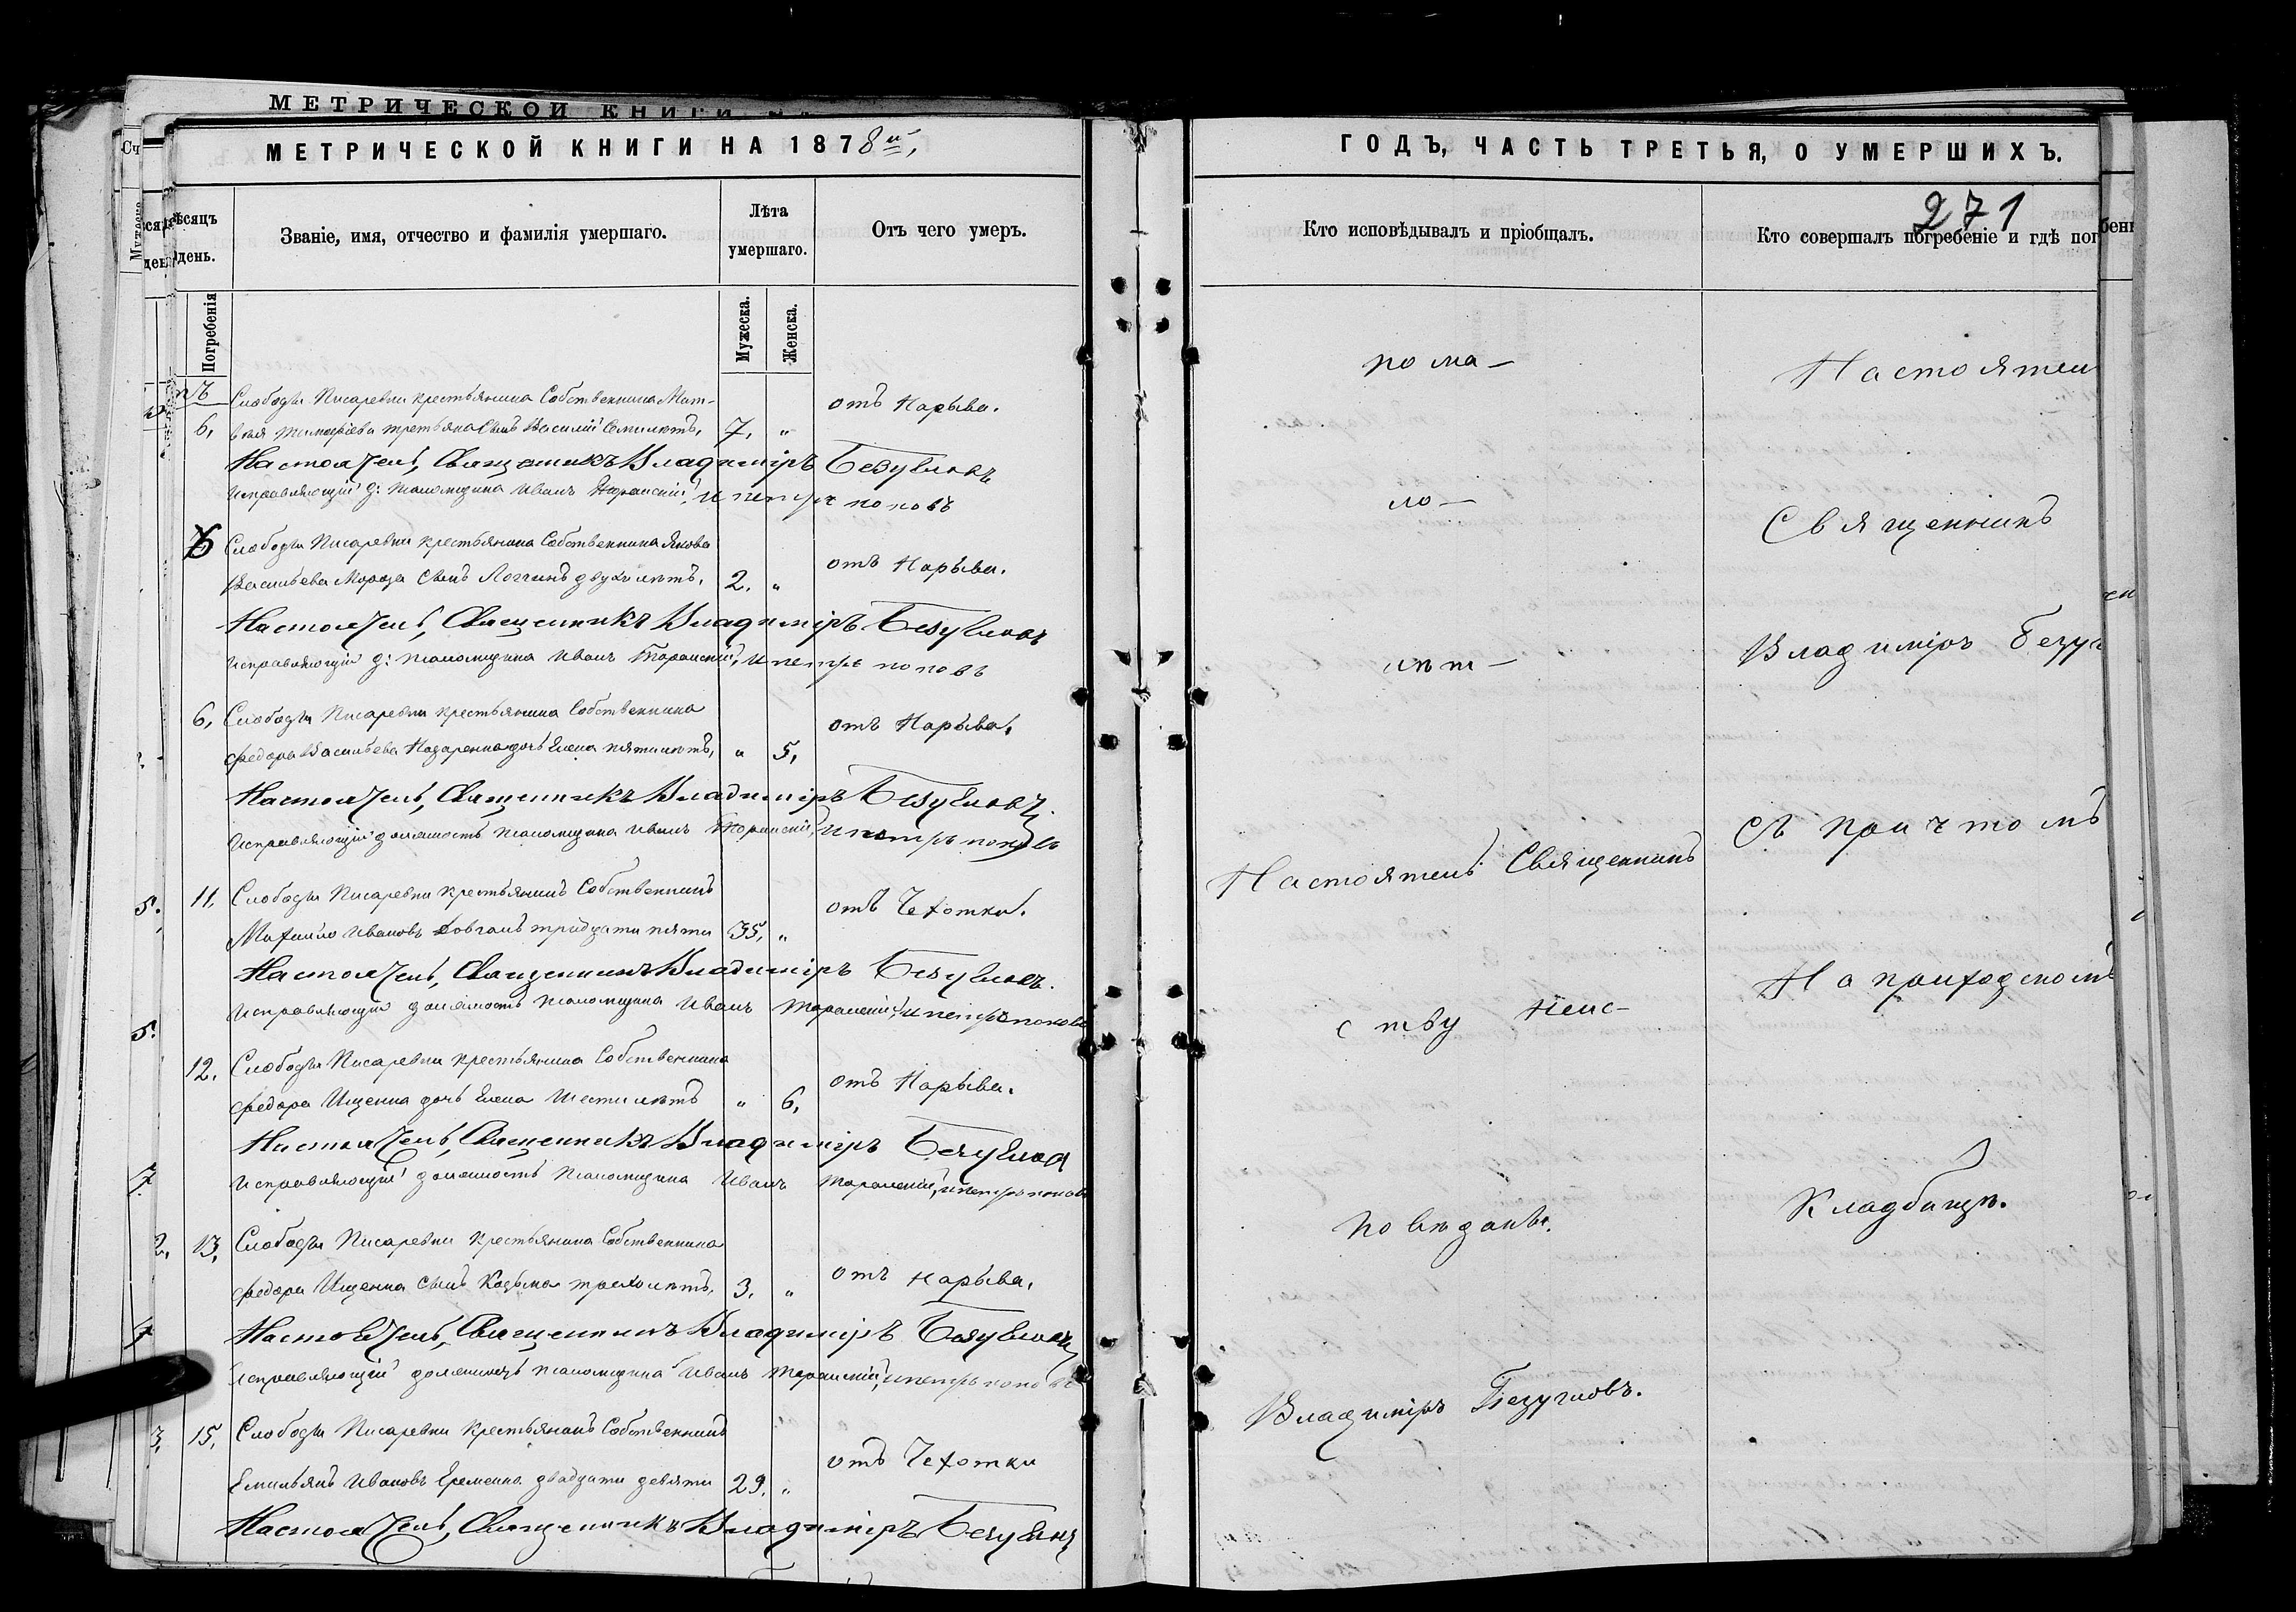 МЕТРИЧЕСКОЙ КНИГИ
МЕТРИЧЕСКОЙ КНИГИ НА 1878й,
мѣсяцъ и день.
Званіе, имя, отчество и фамилія умершаго.
Лѣта умершаго.
Отъ чего умеръ.
Погребенія
Мужеска.
Женска.
6, Слободы Писаревки крестьянина Собственника Мат-
вея Тимофіева третьяка Сынъ Василій Семилѣтъ, 7, „ отъ Нарыва.
Настоятель, Священникъ Владиміръ Безугловъ
Исправляющій д: псаломщика Иванъ Торанскій, и петръ поповъ
6 Слободы Писаревки крестьянина Собственника Якова
Васильева Мороза Сынъ Логгинъ двухъ лѣтъ, 2. „ отъ Нарыва.
Настоятель, Священникъ Владиміръ Безугловъ
Исправляющій д: псаломщика Иванъ Торанскій, и петръ поповъ
6, Слободы Писаревки крестьянина Собственника
Федора Васильева Назаренка дочь Елена пяти лѣтъ, „ 5, отъ Нарыва.
Настоятель, Священникъ Владиміръ Безугловъ.
Исправляющій должность псаломщика Иванъ Торанскій, и петръ поповъ
11, Слободы Писаревки крестьянинъ Собственникъ
Михаило Ивановъ Довгаль тридцати пяти 35, „ отъ Чехотки.
Настоятель, Священникъ Владиміръ Безугловъ.
Исправляющій должность псаломщика Иванъ Торанскій, и петръ поповъ
12, Слободы Писаревки крестьянина Собственника
Федора Ищенка дочь Елена Шести лѣтъ „ 6, отъ Нарыва.
Настоятель, Священникъ Владиміръ Безугловъ
Исправляющій должность псаломщика Иванъ Торанскій, и петръ поповъ
2, 13, Слободы Писаревки крестьянина Собственника
Федора Ищенка Сынъ Козьма трехъ лѣтъ, 3, „ отъ нарыва,
Настоятель, Священникъ Владиміръ Безугловъ
Исправляющій должность псаломщика Иванъ Торанскій, и петръ поповъ
3, 15, Слободы Писаревки крестьянинъ Собственникъ
Емильянъ Ивановъ Еременко двадцати девяти 29, „ отъ Чехотки
Настоятель, Священникъ Владиміръ Безугловъ
ГОДЪ, ЧАСТЬ ТРЕТЬЯ, О УМЕРШИХЪ.
271
Кто исповѣдывалъ и пріобщалъ.
Кто совершалъ погребеніе и гдѣ пог
по ма-
ло-
лѣт-
Настоятель Священникъ
ству Неис-
повѣданы.
Владиміръ Безугловъ.
Настоятел
Священникъ
Владиміръ Безуг
Съ причтомъ
На приходскомъ
Кладбищѣ.